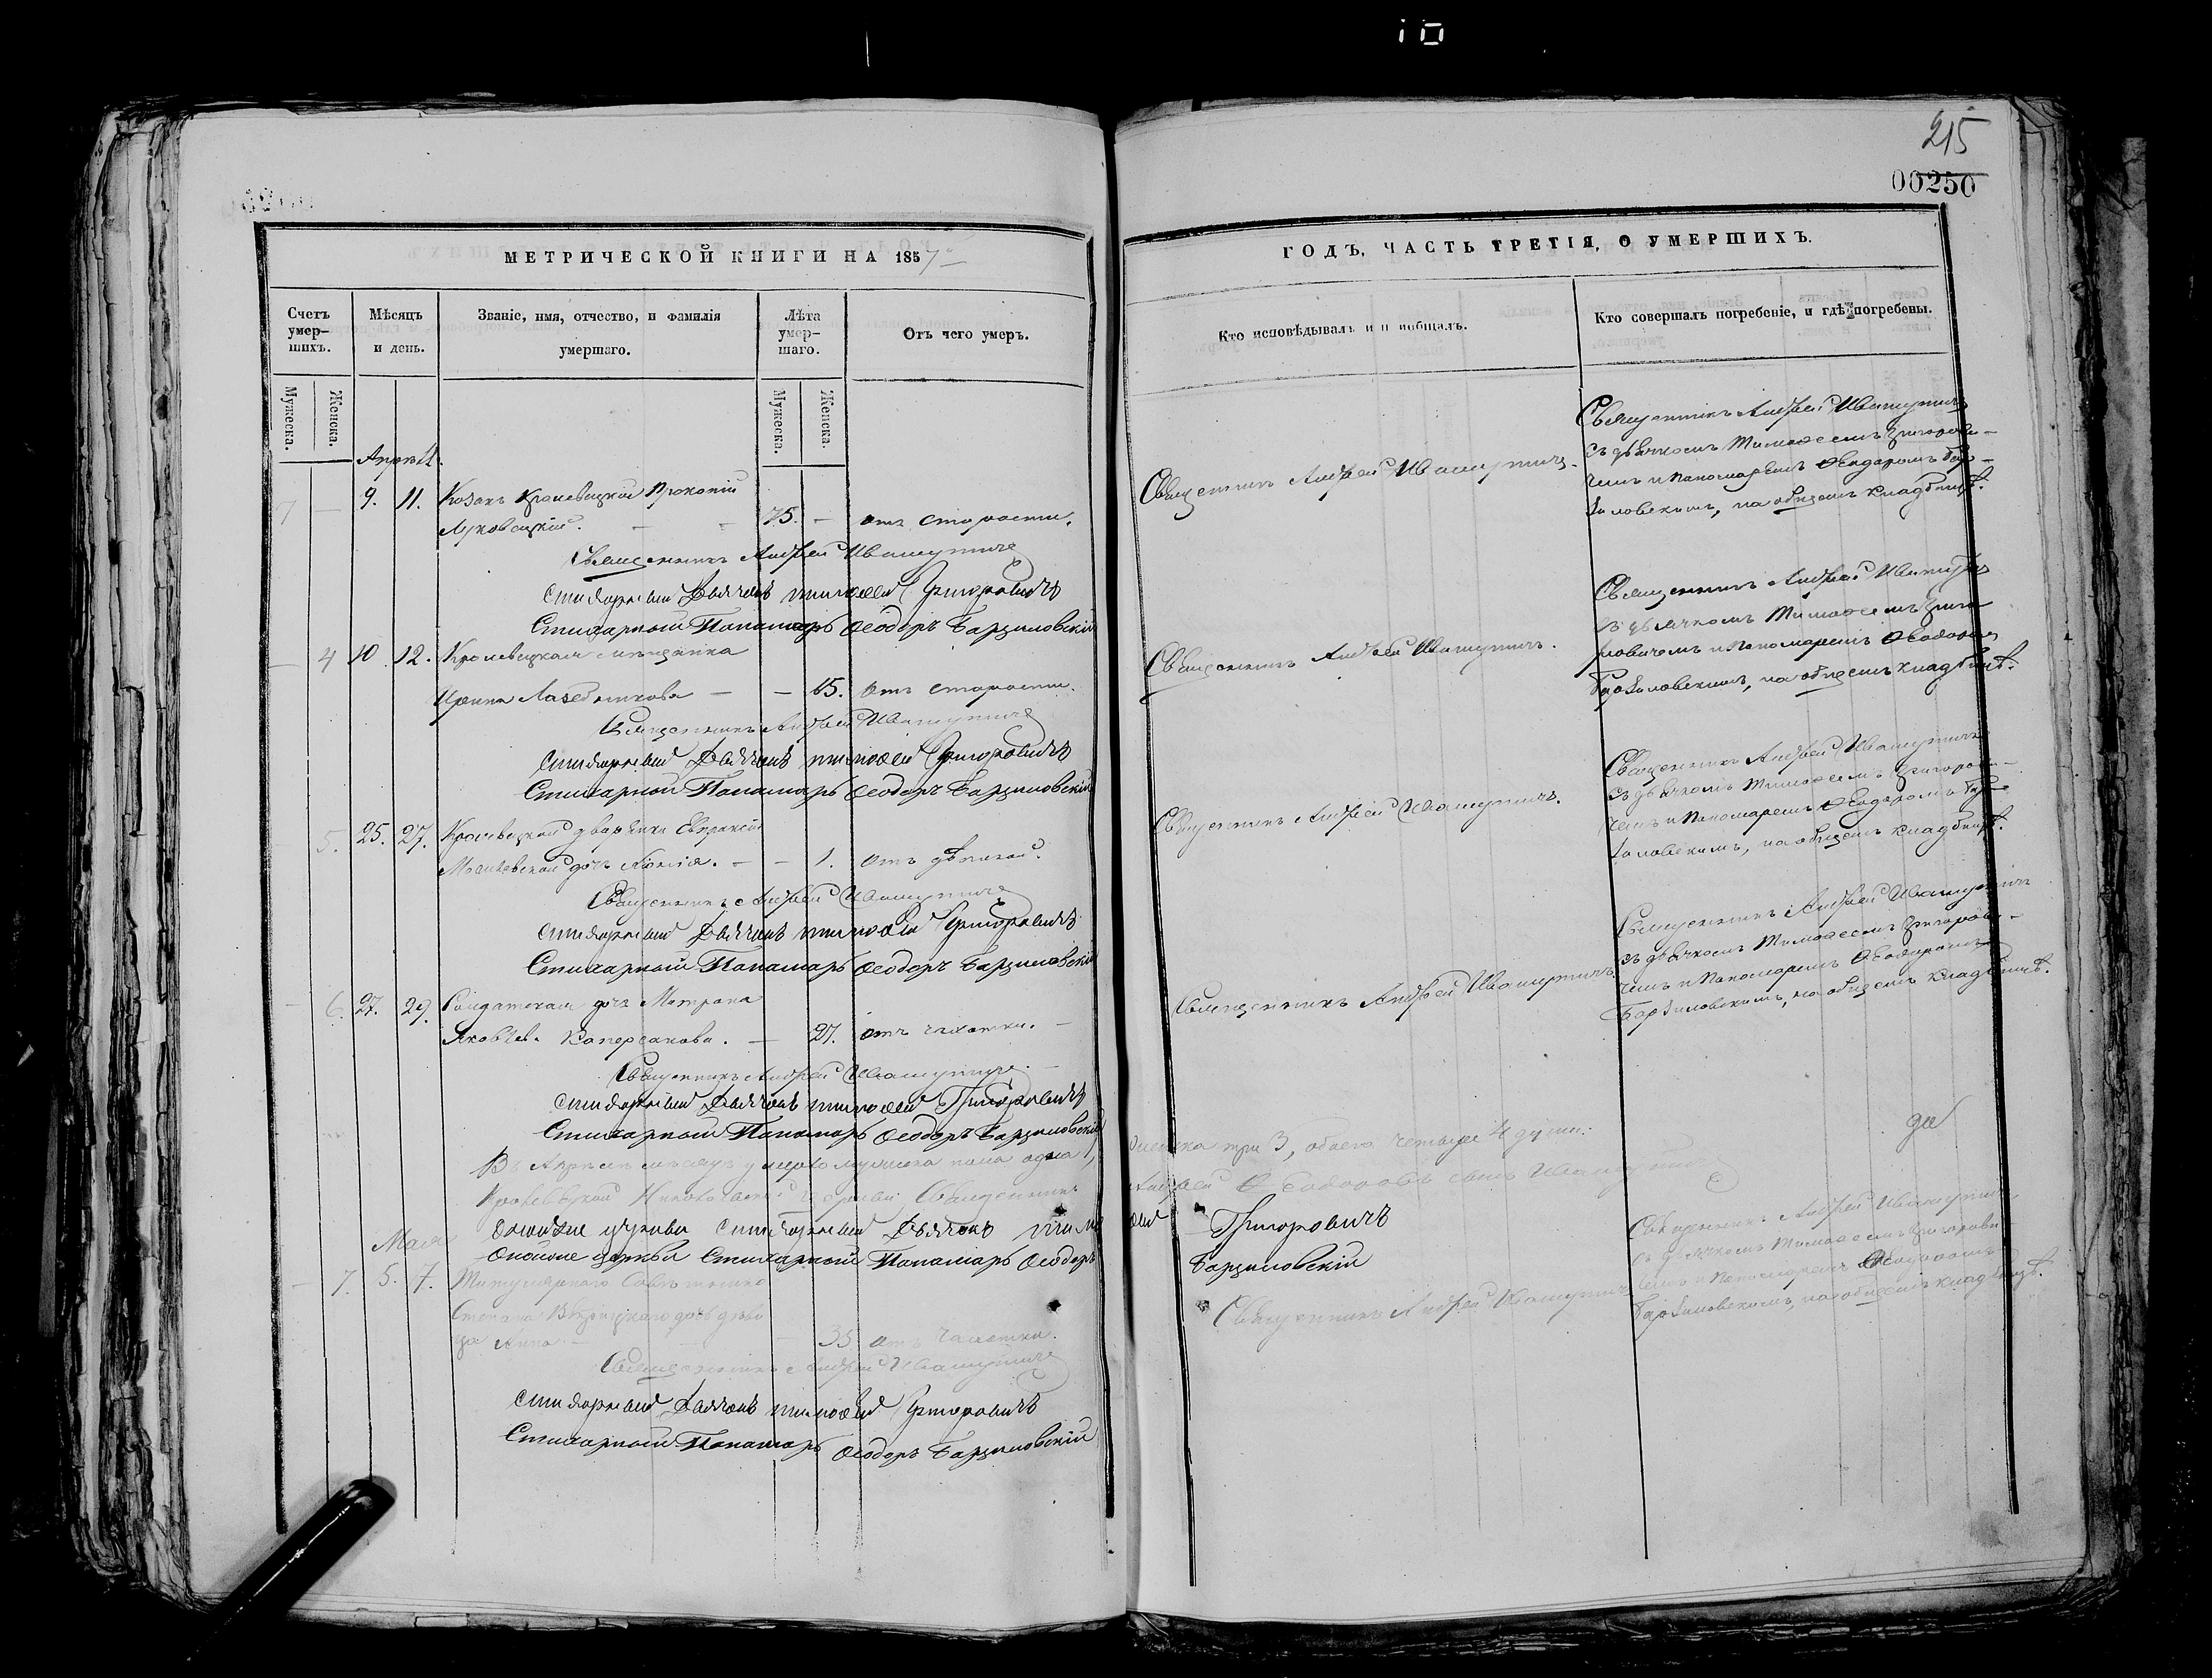 10
215
00250
МЕТРИЧЕСКОЙ КНИГИ НА 1857
Счетъ умер-шихъ.
Мѣсяцъ и день.
Званіе, имя, отчество, и фамилія умершаго.
Лѣта умер-шаго.
Отъ чего умеръ.
Мужеска.
Женска.
Мужеска.
Женска.
Апрѣль.
7 — 9. 11. Козакъ Кролевецкій Прокопій
75. — отъ старости.
Священникъ Андрей Ивашутичъ
Стихарный Дьячокъ Тимоѳей Григоровичъ
Стихарный Пономарь Ѳеодоръ Барзиловскій
— 4 10. 12. Кролевецкая мѣщанка
Ирина — — 65. отъ старости.
Священникъ Андрей Ивашутичъ
Стихарный Дьячокъ Тимоѳей Григоровичъ
Стихарный Пономарь Ѳеодоръ Барзиловскій
5. 25. 27. Кролевецкой
дочь — — 1. отъ
Священникъ Андрей Ивашутичъ
Стихарный Дьячокъ Тимоѳей Григоровичъ
Стихарный Пономарь Ѳеодоръ Барзиловскій
— 6. 27. 29. Солдатская дочь Матрона
Яковлева — 27. отъ чахотки. —
Священникъ Андрей Ивашутичъ
Стихарный Дьячокъ Тимоѳей Григоровичъ
Стихарный Пономарь Ѳеодоръ Барзиловскій
Въ Апрѣлѣ мѣсяцѣ умерло мужеска пола одна 1,
Кролевецкой Николаевской церкви Священникъ
церкви Стихарный Дьячокъ Тимо
Мая
церкви Стихарный Пономарь Ѳеодоръ
— 7. 5. 7. Титулярнаго Совѣтника
Степана дочь дѣви
ца Анна — 35 отъ чахотки.
Священникъ Андрей Ивашутичъ
Стихарный Дьячокъ Тимоѳей Григоровичъ
Стихарный Пономарь Ѳеодоръ Барзиловскій
ГОДЪ, ЧАСТЬ ТРЕТІЯ, О УМЕРШИХЪ.
Кто исповѣдывалъ и пріобщалъ.
Кто совершалъ погребеніе, и гдѣ погребены.
Священникъ Андрей Ивашутичъ.
Священникъ Андрей Ивашутичъ
съ дьячкомъ Тимоѳеемъ Григорови-
чемъ и пономаремъ Ѳеодоромъ Бар-
зиловскимъ, на общемъ кладбищѣ.
Священникъ Андрей Ивашутичъ.
Священникъ Андрей Ивашутичъ
съ дьячкомъ Тимоѳеемъ Григо
ровичемъ и пономаремъ Ѳеодоромъ
Барзиловскимъ, на общемъ кладбищѣ.
Священникъ Андрей Ивашутичъ.
Священникъ Андрей Ивашутичъ
съ дьячкомъ Тимоѳеемъ Григорови-
чемъ и пономаремъ Ѳеодоромъ Бар-
зиловскимъ, на общемъ кладбищѣ.
Священникъ Андрей Ивашутичъ.
Священникъ Андрей Ивашутичъ
съ дьячкомъ Тимоѳеемъ Григорови-
чемъ и пономаремъ Ѳеодоромъ
Барзиловскимъ, на общемъ кладбищѣ.
женска три 3, обоего четыре 4 души.
Андрей Ѳеодоровъ сынъ Ивашутичъ
ѳей Григоровичъ
Барзиловскій
Священникъ Андрей Ивашутичъ
Священникъ Андрей Ивашутичъ
съ дьячкомъ Тимоѳеемъ Григорови-
чемъ и пономаремъ Ѳеодоромъ
Барзиловскимъ, на общемъ кладбищѣ.